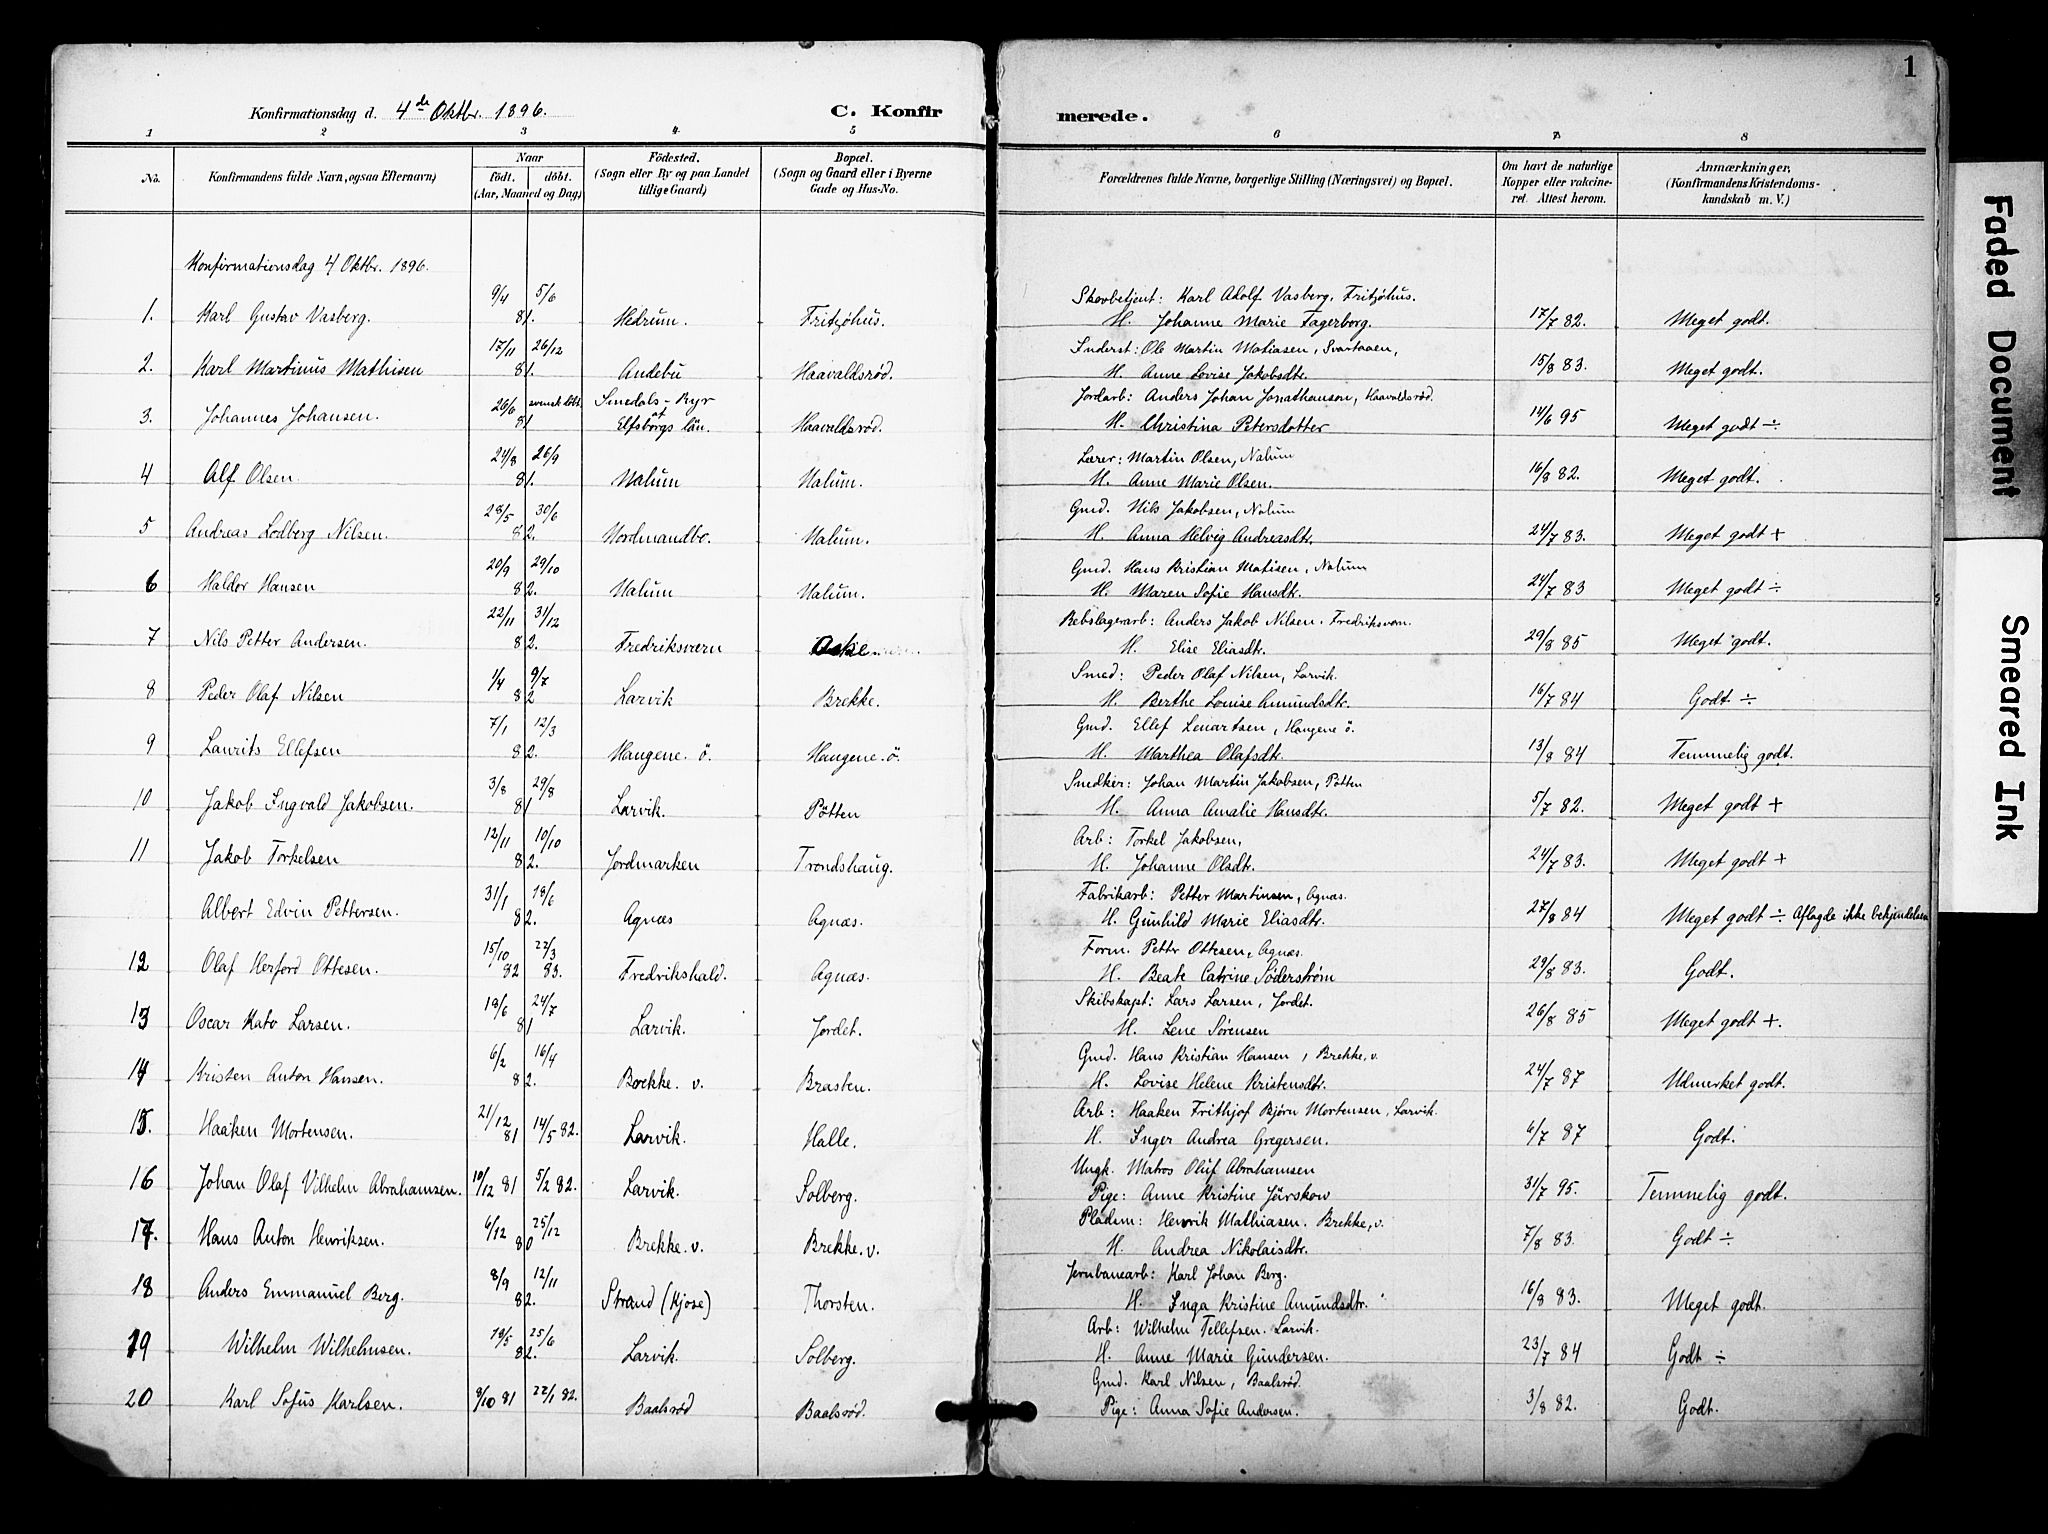 1
Konfirmationsdag d. 4de Oktbr. 1896. C. Konfir merede.
1 2 3 4 5 6 7 8
No. Konfirmandens fulde Navn, ogsaa Efternavn) Naar födt. döbt. (Aar, Maaned og Dag) Födested. (Sogn eller By og paa Landet tillige Gaard) Bopæl. (Sogn og Gaard eller i Byerne Gade og Hus-No. Forældrenes fulde Navne, borgerlige Stilling (Næringsvei) og Bopæl. Om havt de naturlige Kopper eller vakcineret. Attest herom. Anmærkninger, (Konfirmandens Kristendomskundskab m. V.)
Konfirmationsdag 4 Oktbr. 1896.
1. Karl Gustav Vasberg. 9/4 5/6 81. Hedrum. Fritzöhus. Skovbetjent: Karl Adolf Vasberg, Fritzöhus.
H. Johanne Marie Fagerborg. 17/7 82. Meget godt.
2. Karl Martinus Mathisen 17/11 26/12 81. Andebu Haavaldsröd. Inderst: Ole Martin Matiasen, Svartaaen,
H. Anne Lovise Jakobsdtr. 15/8 83. Meget godt.
3. Johannes Johansen. 26/6 svensk döbt. 81 Smedals-Ryr Elfsborgs län. Haavaldsröd. Jordarb: Anders Johan Jonathanson, Haavaldsröd.
H. Christina Petersdotter 14/6 95 Meget godt ÷
4 Alf Olsen. 24/8 26/9 81. Nalum Nalum. Lærer: Martin Olsen, Nalum
H. Anne Marie Olsen. 16/8 82. Meget godt.
5 Andreas Lodberg Nilsen. 28/5 30/6 82. Nordmandbo. Nalum. Gmd. Nils Jakobsen, Nalum
H. Anna Helvig Andreasdtr. 24/7 83. Meget godt +
6 Haldor Hansen 20/9 29/10 82. Nalum Nalum. Gmd. Hans Kristian Matisen, Nalum
H. Maren Sofie Hansdtr. 24/7 83 Meget godt ÷
7 Nils Petter Andersen. 22/11 31/12 82. Fredriksværn Rebslagerarb: Anders Jakob Nilsen. Fredriksværn.
H. Elise Eliasdtr. 29/8 85 Meget godt.
8 Peder Olaf Nilsen 1/4 9/7 82 Larvik Brekke. Smed: Peder Olaf Nilsen, Larvik.
H. Berthe Lovise Amundsdtr. 16/7 84 Godt ÷
9 Laurits Ellefsen 7/1 12/3 82. Haugene. ö. Haugene. ö. Gmd. Ellef Lenartsen, Haugene ö.
H. Marthea Olafsdtr. 13/8 84 Temmelig godt.
10 Jakob Ingvald Jakobsen. 3/8 29/8 81 Larvik. Pötten Snedker: Johan Martin Jakobsen, Pötten
H. Anna Amalie Hansdtr. 5/7 82. Meget godt +
11 Jakob Torkelsen 12/11 10/10 82. Jordmarken Trondshaug. Arb: Torkel Jakobsen,
H. Johanne Olsdtr. 24/7 83. Meget godt +
Albert Edvin Pettersen. 31/1 18/6 82. Agnæs Agnæs. Fabrikarb: Petter Martinsen, Agnæs.
H. Gunhild Marie Eliasdtr. 27/8 84 Meget godt ÷ Aflagde ikke bekjendelsen
12 Olaf Herford Ottesen. 15/10 82 22/3 83. Fredrikshald. Agnæs. Form. Petter Ottesen, Agnæs.
H. Beate Catrine Söderström 29/8 83. Godt.
13 Oscar Kato Larsen. 18/6 24/7 81 Larvik. Jordet. Skibskapt: Lars Larsen, Jordet.
H. Lene Sørensen 26/8 85 Meget godt +.
14 Kristen Anton Hansen. 6/2 16/4 82. Brekke. v. Brasten. Gmd. Hans Kristian Hansen, Brekke, v.
H. Lovise Helene Kristensdtr. 24/7 87 Udmerket godt.
15. Haaken Mortensen. 21/12 81 14/5 82. Larvik. Halle. Arb: Haaken Frithjof Bjørn Mortensen, Larvik.
H. Inger Andrea Gregersen. 6/7 87 Godt.
16 Johan Olaf Vilhelm Abrahamsen. 10/12 81 5/2 82. Larvik. Solberg. Ungk. Matros Oluf Abrahamsen
Pige: Anne Kristine Jörskow 31/7 95. Temmelig godt.
17. Hans Anton Henriksen. 6/12 25/12 80 Brekke. v. Brekke. v. Pladsm: Henrik Mathiasen. Brekke, v.
H. Andrea Nikolaisdtr. 7/8 83. Godt ÷
18 Anders Emmanuel Berg. 8/9 12/11 82. Strand (Kjose) Thorsten. Jernbanearb: Karl Johan Berg.
H. Inga Kristine Amundsdtr. 16/8 83. Meget godt.
19 Wilhelm Wilhelmsen. 19/5 25/6 82. Larvik. Solberg. Arb: Wilhelm Tellefsen. Larvik.
H. Anne Marie Gundersen. 23/7 84 Godt ÷
20 Karl Sofus Karlsen. 8/10 81 22/1 82. Baalsröd Baalsröd. Gmd. Karl Nilsen, Baalsröd.
Pige: Anna Sofie Andersen. 3/8 82. Godt.
Faded Document
Smeared Ink